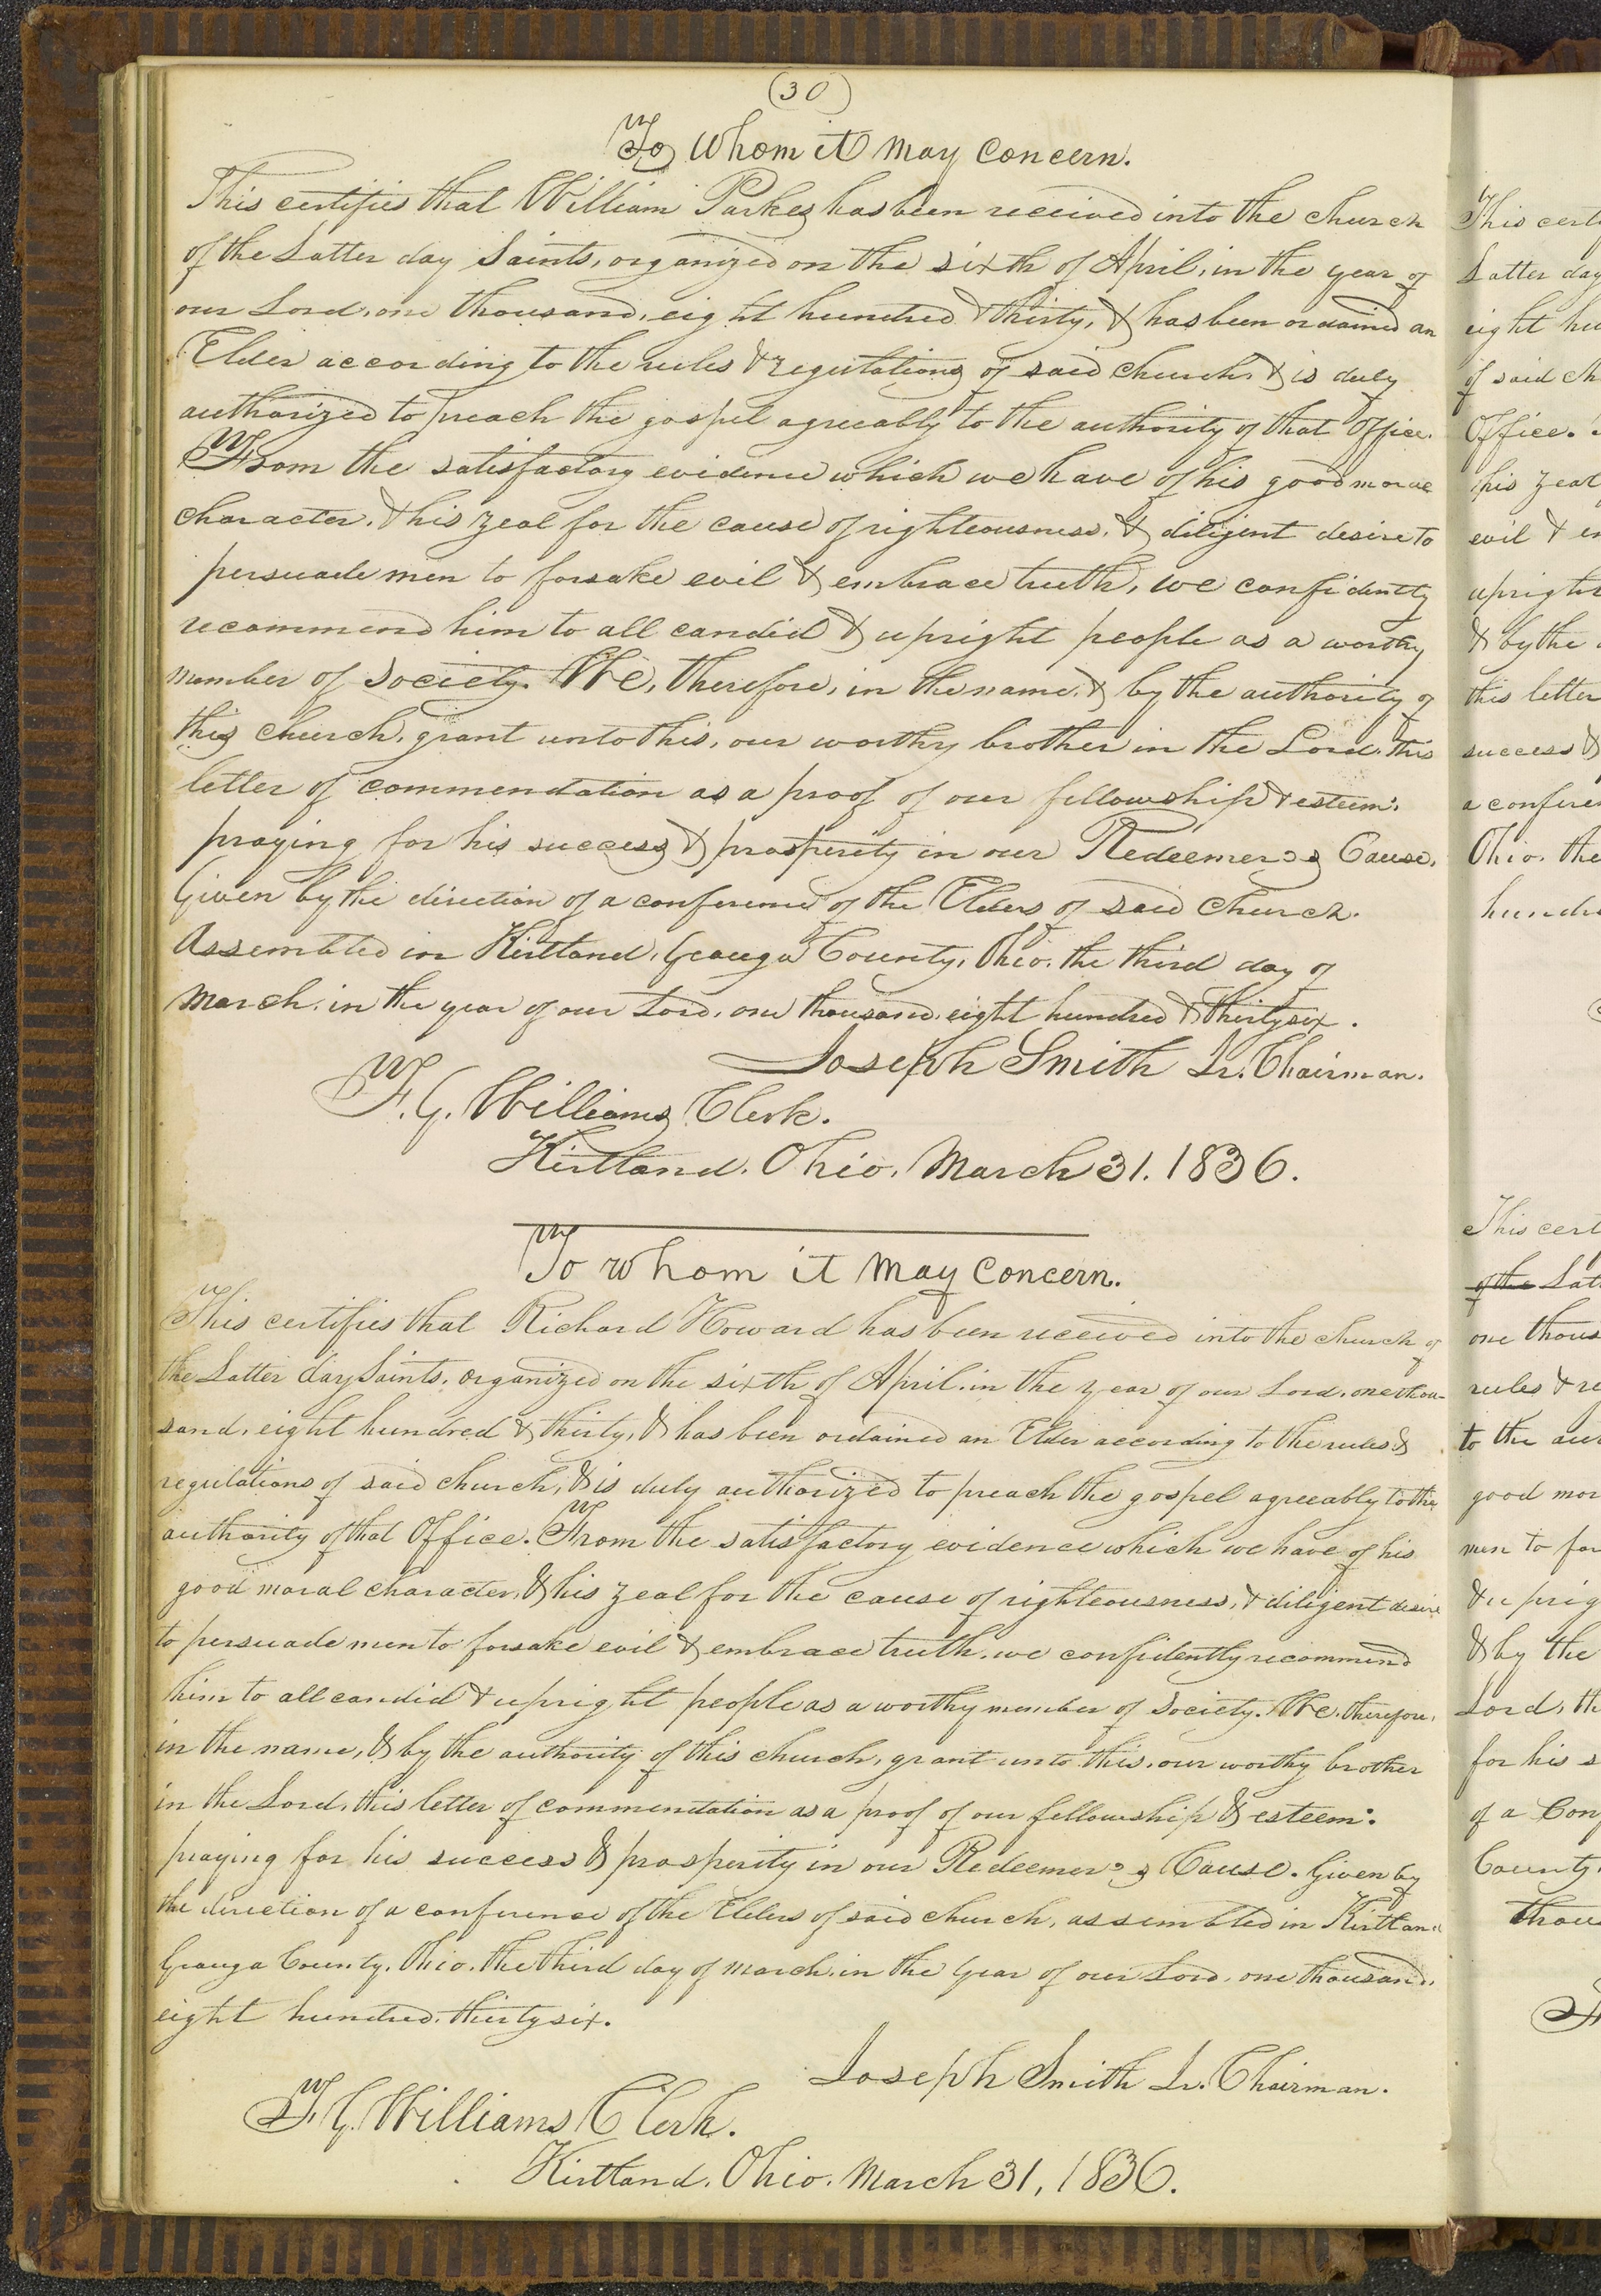 (30)
To Whom it May Concern.
This certifies that William Parkes has been received into the church
of the Latter day Saints, organized on the sixth of April, in the year of
our Lord, one thousand, eight hundred & thirty, & has been ordained an
Elder according to the rules & regulations of said church, & is duly
authorized to preach the gospel agreeably to the authority of that Office.
From the satisfactory evidence which we have of his good moral
character, & his zeal for the cause of righteousness, & diligent desire to
persuade men to forsake evil & embrace truth, we confidently
recommend him to all candid & upright people as a worthy
member of Society. We, therefore, in the name, & by the authority of
this church, grant unto this, our worthy brother in the Lord, this
letter of commendation as a proof of our fellowship & esteem:
praying for his success & prosperity in our Redeemer's Cause.
Given by the direction of a conference of the Elders of said church.
Assembled in Kirtland, Geauga County, Ohio, the third day of
March, in the year of our Lord, one thousand, eight hundred & thirty six.
Joseph Smith Jr. Chairman.
F. G. Williams Clerk.
Kirtland, Ohio, March 31, 1836.
To whom it May Concern.
This certifies that Richard Howard has been received into the church of
the Latter day Saints, organized on the sixth of April, in the year of our Lord, one thou-
sand, eight hundred & thirty, & has been ordained an Elder according to the rules &
regulations of said church, & is duly authorized to preach the gospel agreeably to the
authority of that Office. From the satisfactory evidence which we have of his
good moral character, & his zeal for the cause of righteousness, & diligent desire
to persuade men to forsake evil & embrace truth, we confidently recommend
him to all candid & upright people as a worthy member of Society. We, therefore,
in the name, & by the authority of this church, grant unto this, our worthy brother
in the Lord, this letter of commendation as a proof of our fellowship & esteem:
praying for his success & prosperity in our Redeemer's Cause. Given by
the direction of a conference of the Elders of said church, assembled in Kirtland
Geauga County, Ohio, the third day of March, in the year of our Lord, one thousand,
eight hundred, thirty six.
Joseph Smith Jr. Chairman.
F. G. Williams Clerk.
Kirtland, Ohio, March 31, 1836.
This
Latter day
eight
of said
Office.
his zeal
evil &
& by the
this letter
success &
a
Ohio, the
This
of the
one
rules &
to the
good
men to
&
& by the
Lord,
for his
of a
County,